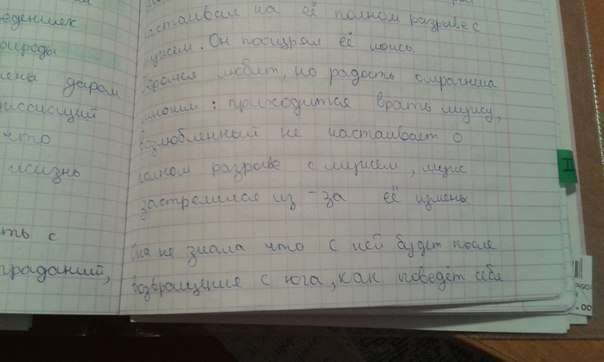 ведениек
природы
дарам
что
жизнь
ть с
традиций,
настаивал на её полном разрыве с
мужем. Он поощрял её
любит, но радость омрачена
: приходится врать мужу,
возлюбленный не настаивает о
полном разрыве с мужем, муж
застрелился из-за её измены
Она не знала что с ней будет после
возвращение с юга, как поведёт себя
II
.00